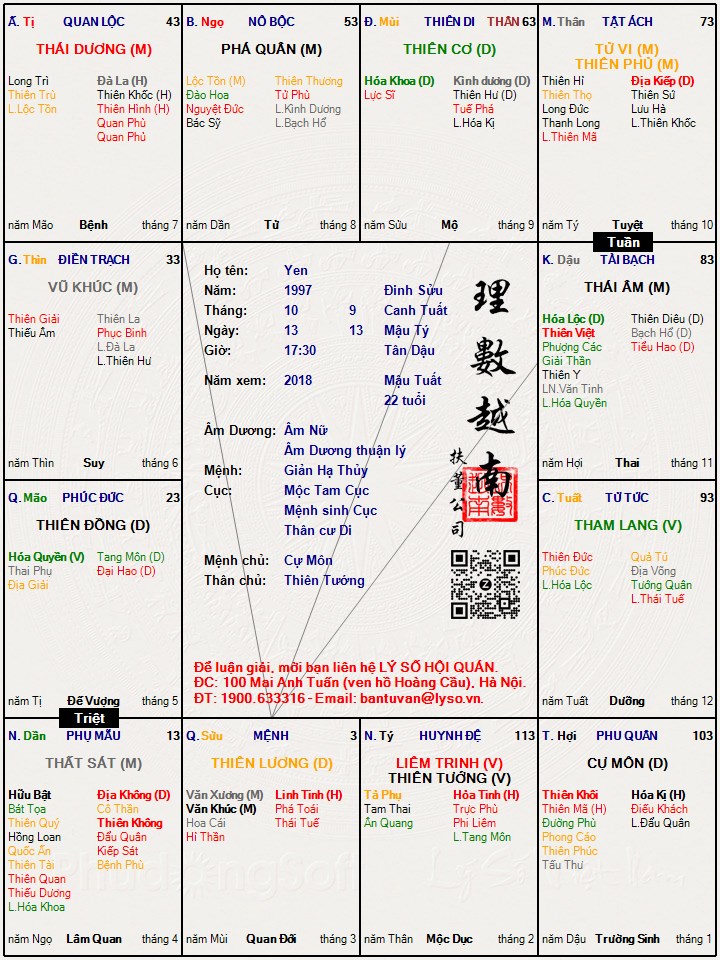 Ă. Tị QUAN LỘC 43
THÁI DƯƠNG (M)
Long Trì
Thiên Trù
L.Lộc Tồn
Đà La (H)
Thiên Khốc (H)
Thiên Hình (H)
Quan Phù
Quan Phủ
năm Mão Bệnh tháng 7
B. Ngọ NÔ BỘC 53
PHÁ QUÂN (M)
Lộc Tồn (M)
Đào Hoa
Nguyệt Đức
Bác Sỹ
Thiên Thương
Tử Phù
L.Kình Dương
L.Bạch Hổ
năm Dần Tử tháng 8
Đ. Mùi THIÊN DI THÂN 63
THIÊN CƠ (D)
Hóa Khoa (D)
Lực Sĩ
Kình dương (D)
Thiên Hư (D)
Tuế Phá
L.Hóa Kị
năm Sửu Mộ tháng 9
M. Thân TẬT ÁCH 73
TỬ VI (M)
THIÊN PHỦ (M)
Thiên Hỉ
Thiên Thọ
Long Đức
Thanh Long
L.Thiên Mã
Địa Kiếp (D)
Thiên Sứ
Lưu Hà
L.Thiên Khốc
năm Tý Tuyệt tháng 10
Tuần
G. Thìn ĐIỀN TRẠCH 33
VŨ KHÚC (M)
Thiên Giải
Thiếu Âm
Thiên La
Phục Binh
L.Đà La
L.Thiên Hư
năm Thìn Suy tháng 6
Họ tên: Yen
Năm: 1997 Đinh Sửu
Tháng: 10 9 Canh Tuất
Ngày: 13 13 Mậu Tý
Giờ: 17:30 Tân Dậu
Năm xem: 2018 Mậu Tuất
22 tuổi
Âm Dương: Âm Nữ
Âm Dương thuận lý
Mệnh: Giản Hạ Thủy
Cục: Mộc Tam Cục
Mệnh sinh Cục
Thân cư Di
Mệnh chủ: Cự Môn
Thân chủ: Thiên Tướng
理數越南
扶董公司
Để luận giải, mời bạn liên hệ LÝ SỐ HỘI QUÁN.
ĐC: 100 Mai Anh Tuấn (ven hồ Hoàng Cầu), Hà Nội.
ĐT: 1900.633316 - Email: bantuvan@lyso.vn.
K. Dậu TÀI BẠCH 83
THÁI ÂM (M)
Hóa Lộc (D)
Thiên Việt
Phượng Các
Giải Thần
Thiên Y
LN.Văn Tinh
L.Hóa Quyền
Thiên Diêu (D)
Bạch Hổ (D)
Tiểu Hao (D)
năm Hợi Thai tháng 11
Q. Mão PHÚC ĐỨC 23
THIÊN ĐỒNG (D)
Hóa Quyền (V)
Thai Phụ
Địa Giải
Tang Môn (D)
Đại Hao (D)
năm Tị Đế Vượng tháng 5
Triệt
C. Tuất TỬ TỨC 93
THAM LANG (V)
Thiên Đức
Phúc Đức
L.Hóa Lộc
Quả Tú
Địa Võng
Tướng Quân
L.Thái Tuế
năm Tuất Dưỡng tháng 12
N. Dần PHỤ MẪU 13
THẤT SÁT (M)
Hữu Bật
Bát Tọa
Thiên Quý
Hồng Loan
Quốc Ấn
Thiên Tài
Thiên Quan
Thiếu Dương
L.Hóa Khoa
Địa Không (D)
Cô Thần
Thiên Không
Đẩu Quân
Kiếp Sát
Bệnh Phù
năm Ngọ Lâm Quan tháng 4
Q. Sửu MỆNH 3
THIÊN LƯƠNG (D)
Văn Xương (M)
Văn Khúc (M)
Hoa Cái
Hỉ Thần
Linh Tinh (H)
Phá Toái
Thái Tuế
năm Mùi Quan Đới tháng 3
N. Tý HUYNH ĐỆ 113
LIÊM TRINH (V)
THIÊN TƯỚNG (V)
Tả Phụ
Tam Thai
Ân Quang
Hỏa Tinh (H)
Trực Phù
Phi Liêm
L.Tang Môn
năm Thân Mộc Dục tháng 2
T. Hợi PHU QUÂN 103
CỰ MÔN (D)
Thiên Khôi
Thiên Mã (H)
Đường Phù
Phong Cáo
Thiên Phúc
Tấu Thư
Hóa Kị (H)
Điếu Khách
L.Đẩu Quân
năm Dậu Trường Sinh tháng 1